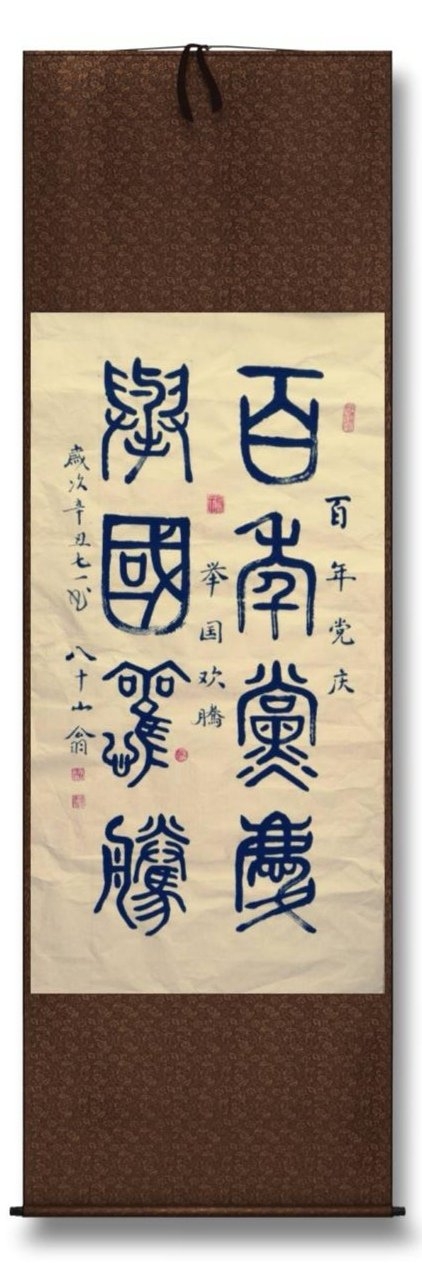 百年党庆
百年黨慶
举国欢騰
舉國懽騰
歲次辛丑七一
八十山翁